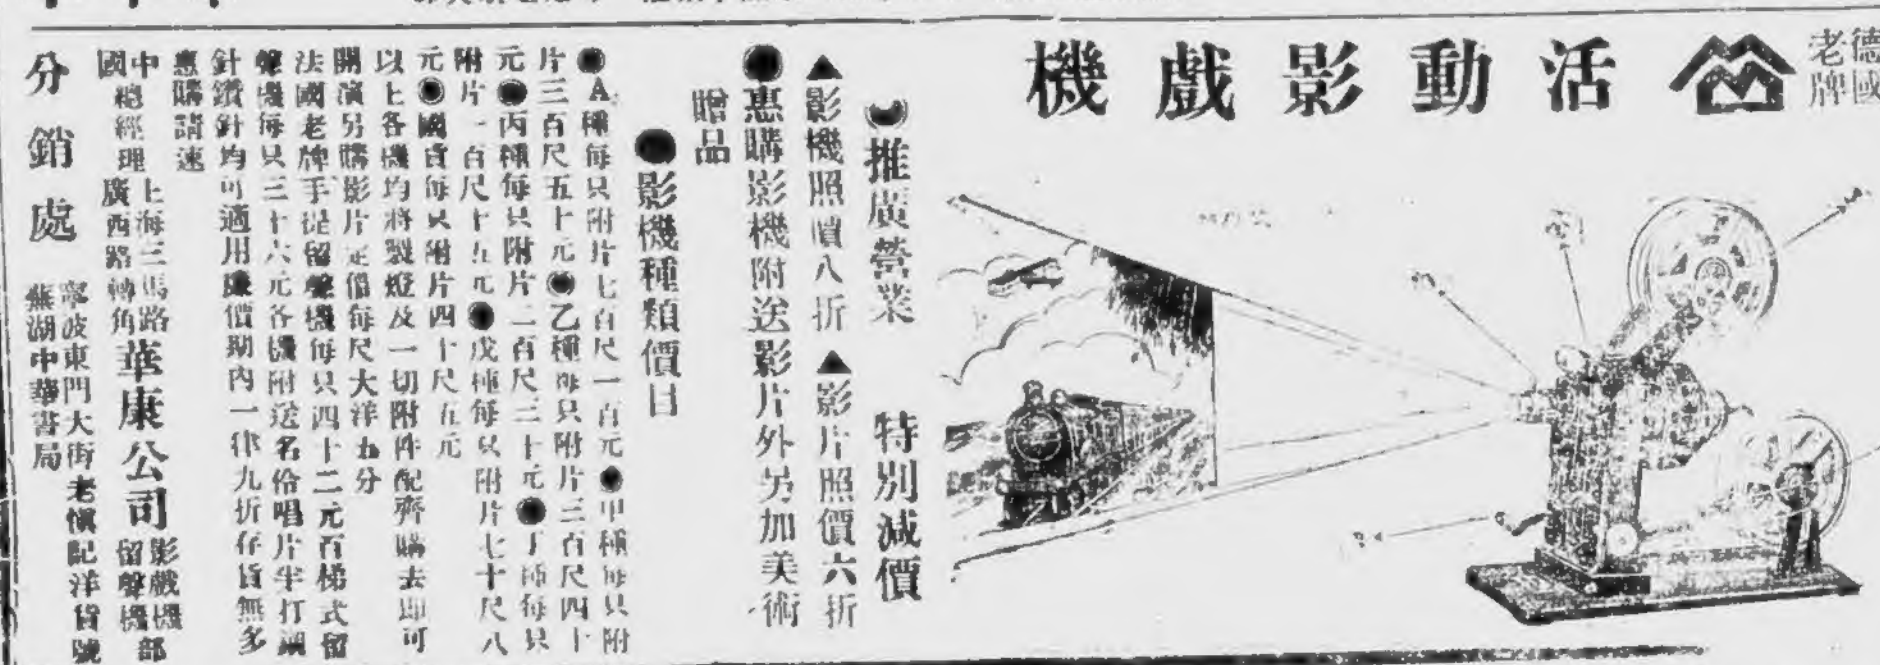 德國
老牌
活動影戲機
推廣營業 特別減價
▲影機照價八折 ▲影片照價六折
●惠購影機附送影片外另加美術
贈品
●影機種類價目
●A種每只附片七百尺一百元●甲種每只附
片三百尺五十元●乙種每只附片三百尺四十
元●丙種每只附片二百尺三十元●丁種每只
附片一百尺十五元●戊種每只附片七十尺八
元●國貨每只附片四十尺五元
以上各機均將製燈及一切附件配齊購去即可
開演另購影片定價每尺大洋五分
法國老牌手提留聲機每只四十二元百梯式留
聲機每只三十六元各機附送名伶唱片半打鋼
針鑽針均可適用廉價期內一律九折存貨無多
惠購請速
中國總經理 上海三馬路廣西路轉角 華康公司 影戲機留聲機部
分銷處 寧波東門大街老愼記洋貨號
蕪湖中華書局